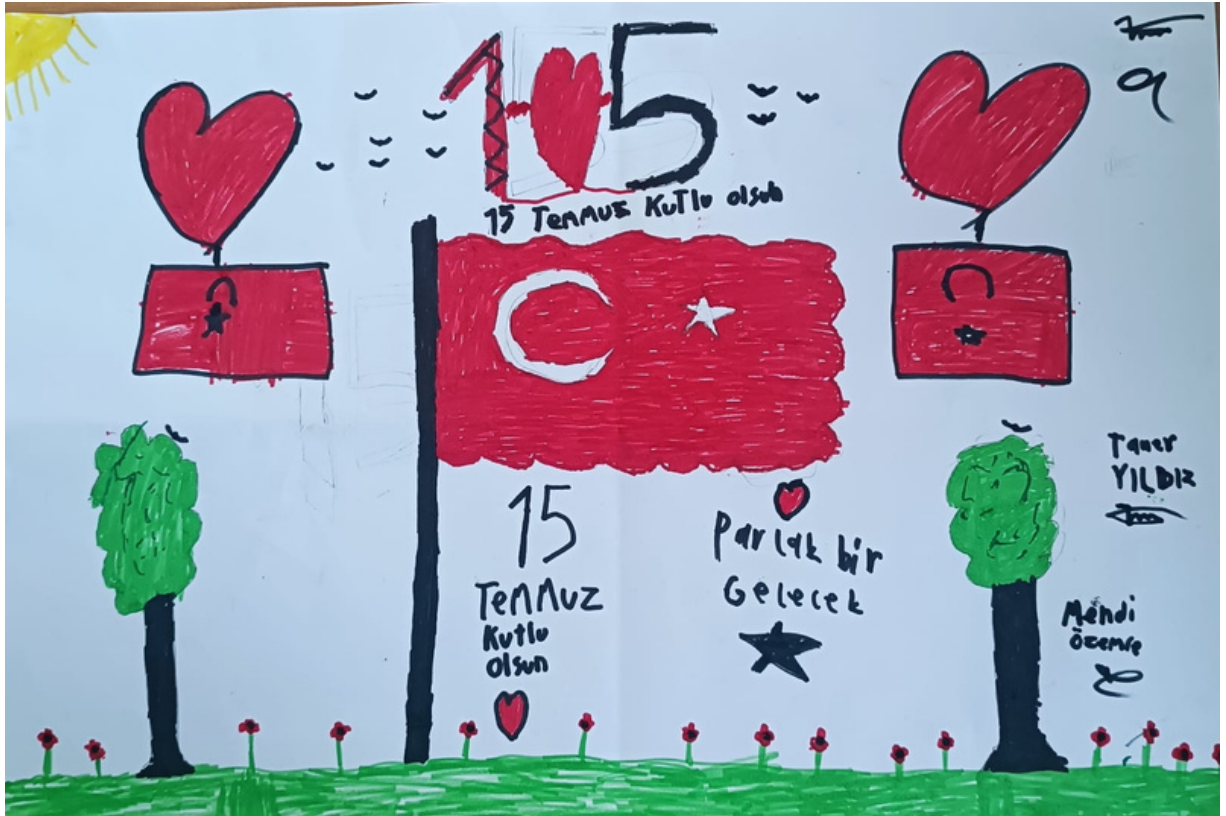 15
15 Temmuz Kutlu olsun
15
Temmuz
Kutlu
olsun
Parlak bir
Gelecek
Taner
YILDIZ
Mehdi
özemre